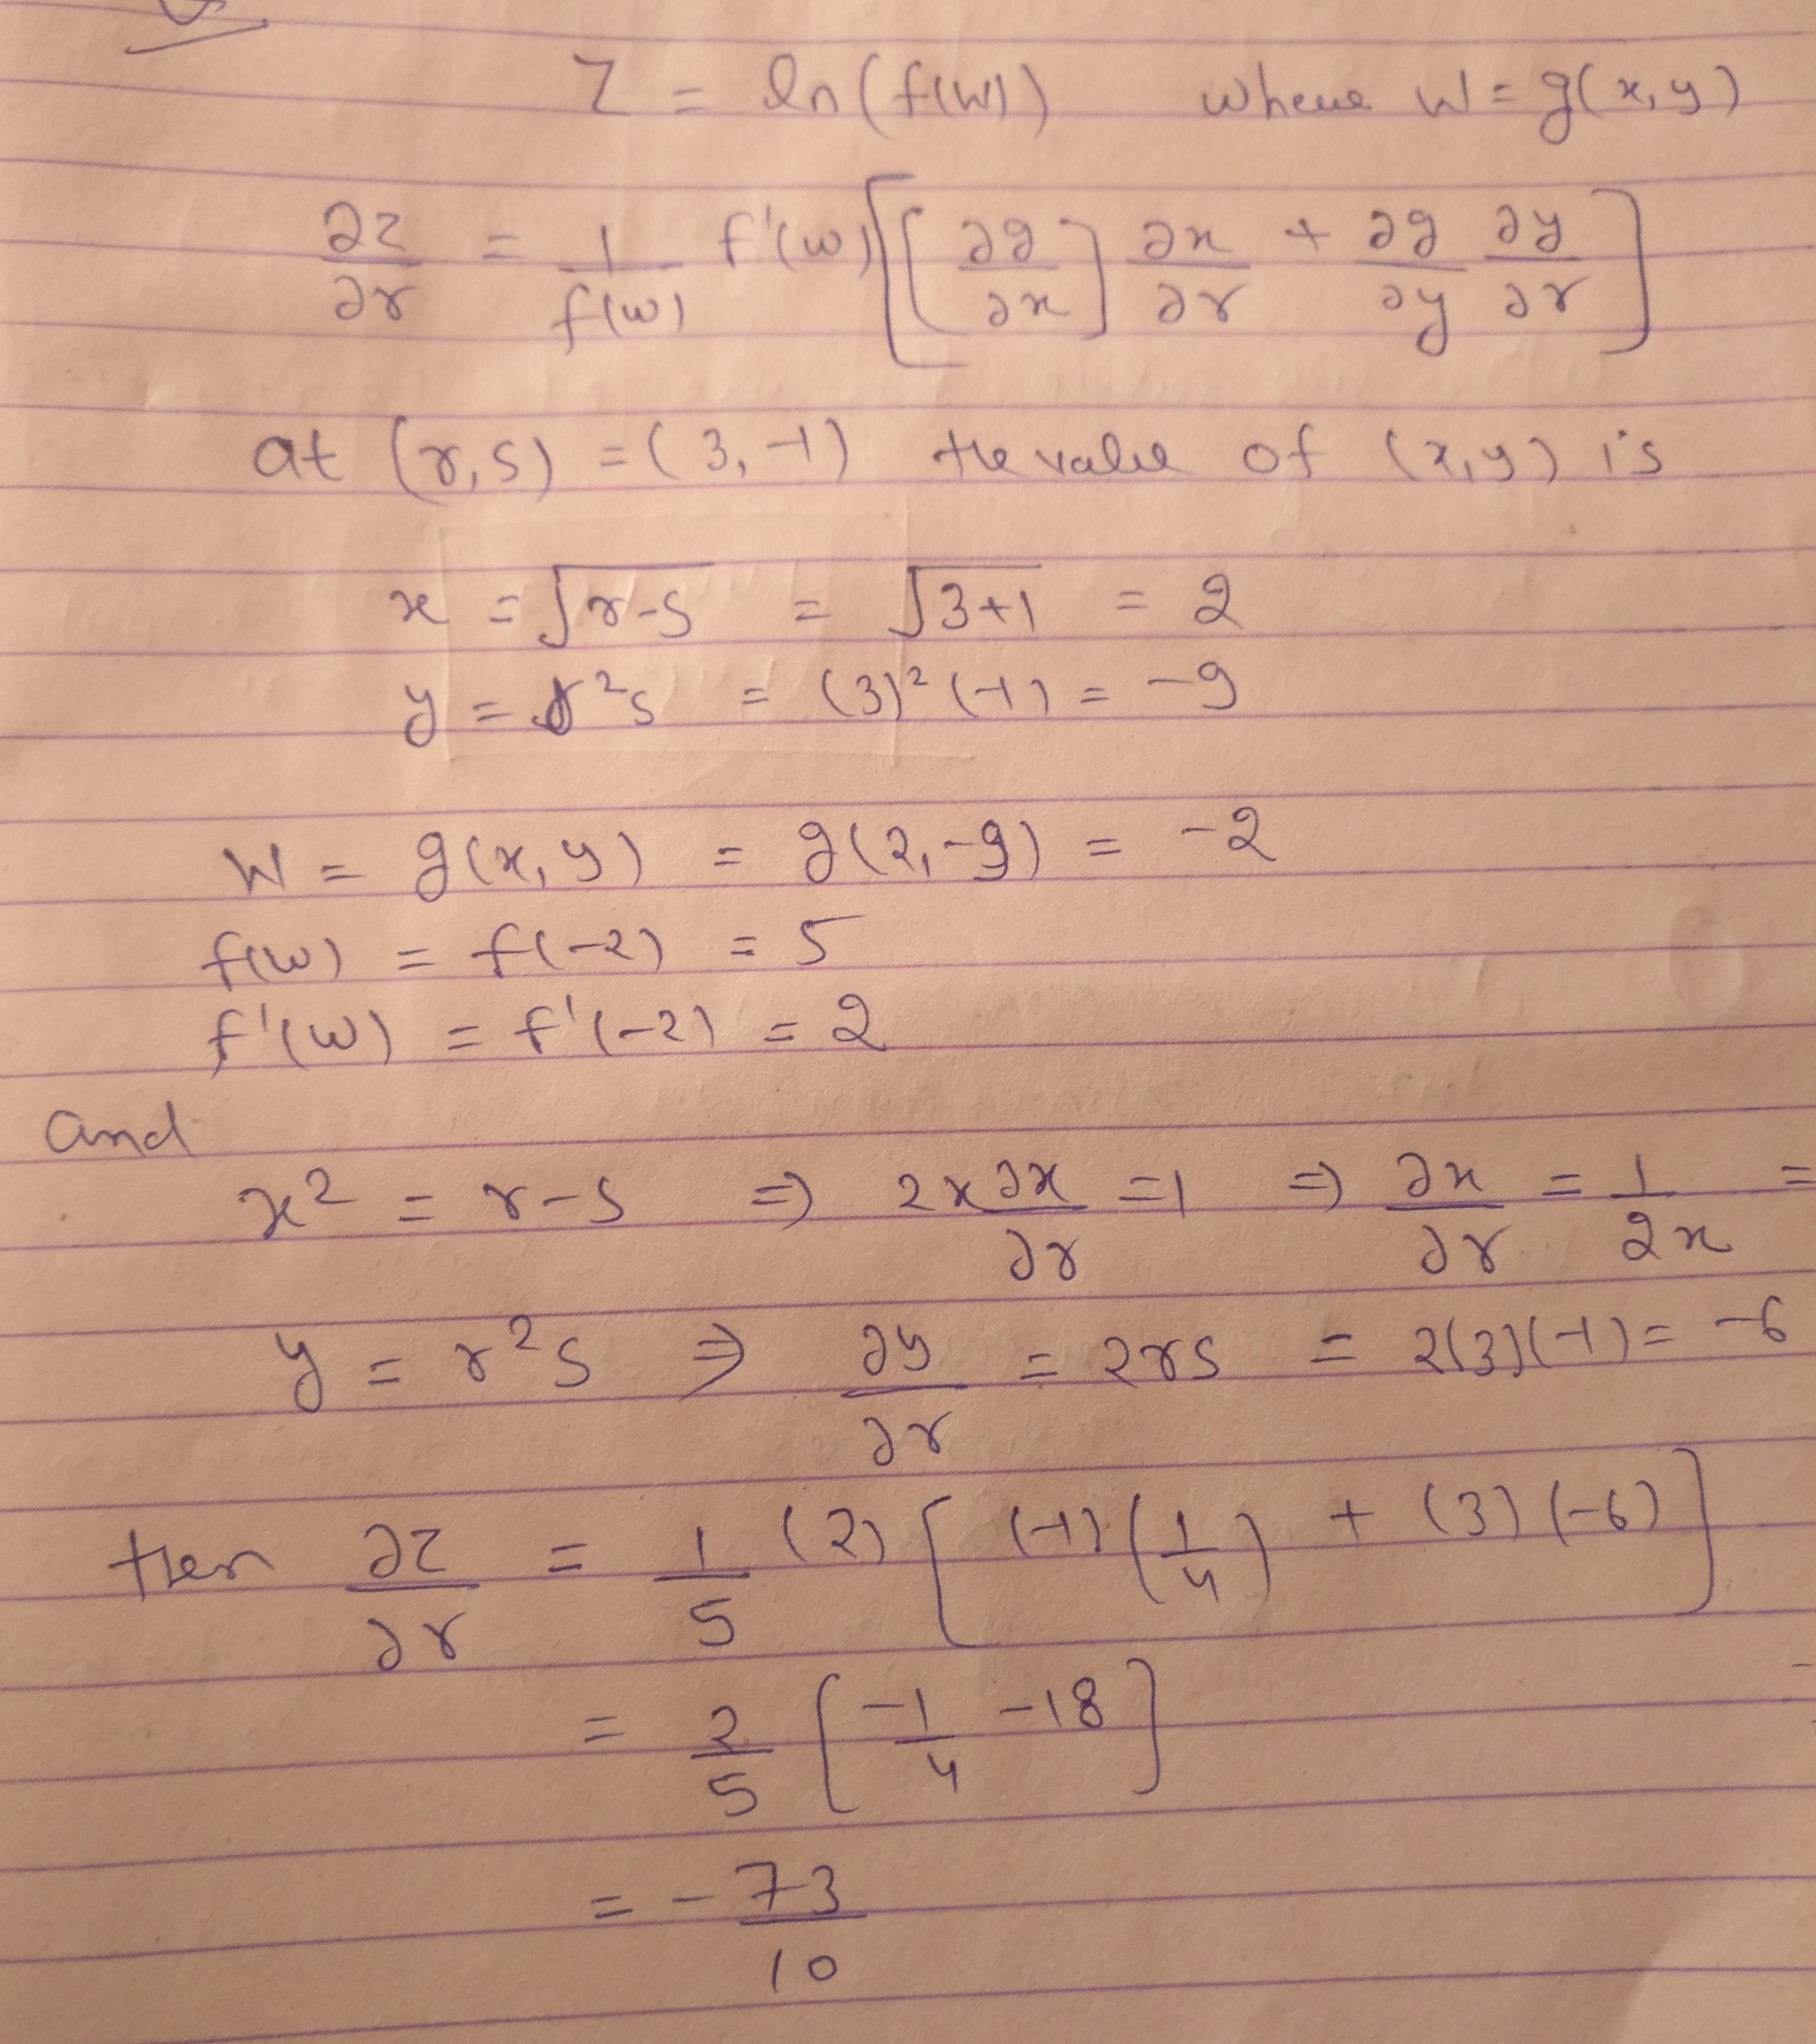 Z = ln(f(w)) where W = g(x,y)
∂z/∂r = 1/f(w) f'(w) [[∂g/∂x] ∂x/∂r + ∂g/∂y ∂y/∂r]
at (r,s) = (3,-1) the value of (x,y) is
x = √(r-s) = √(3+1) = 2
y = r²s = (3)²(-1) = -9
W = g(x,y) = g(2,-9) = -2
f(w) = f(-2) = 5
f'(w) = f'(-2) = 2
and
x² = r-s ⇒ 2x ∂x/∂r = 1 ⇒ ∂x/∂r = 1/2x =
y = r²s ⇒ ∂y/∂r = 2rs = 2(3)(-1) = -6
then ∂z/∂r = 1/5 (2) [(-1)(1/4) + (3)(-6)]
= 2/5 [-1/4 -18]
= -73/10